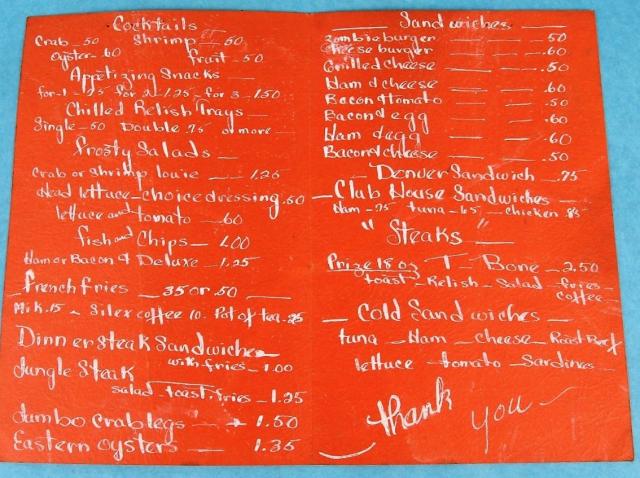 Cocktails
Crab - 50 Shrimp - 50
Oyster - 60 fruit - 50
Appetizing Snacks -
for - 1 - .25 for 2 - 1.25 - for 3 - 1.50
Chilled Relish Trays -
Single - 50 Double .75 or more -
Frosty Salads -
Crab or Shrimp louie - 1.25
Head lettuce - choice dressing .50
lettuce and tomato - .60
fish and Chips - 1.00
Ham or Bacon & Deluxe - 1.25
french fries - 35 or .50 -
Milk .15 - Silex coffee 10. Pot of tea - 25
Dinner Steak Sandwiches
with fries - 1.00
Jungle Steak
salad - toast - fries - 1.25
Jumbo Crab legs - - 1.50
Eastern Oysters - 1.35
Sandwiches -
Zombieburger - - .50
Cheese burger - - .60
Grilled cheese - - .50
Ham & cheese - - .60
Bacon & tomato - - .50
Bacon & egg - - .60
Ham & egg - - .60
Bacon & cheese - - .50
- Denver Sandwich - .75
- Club House Sandwiches -
Ham - 75 tuna - 65 - chicken . 85
"Steaks" -
Prize 18 oz T - Bone - 2.50
toast - Relish - Salad - fries -
coffee -
- Cold Sandwiches -
tuna - Ham - cheese - Roast Beef
lettuce - tomato - Sardines -
Thank you -